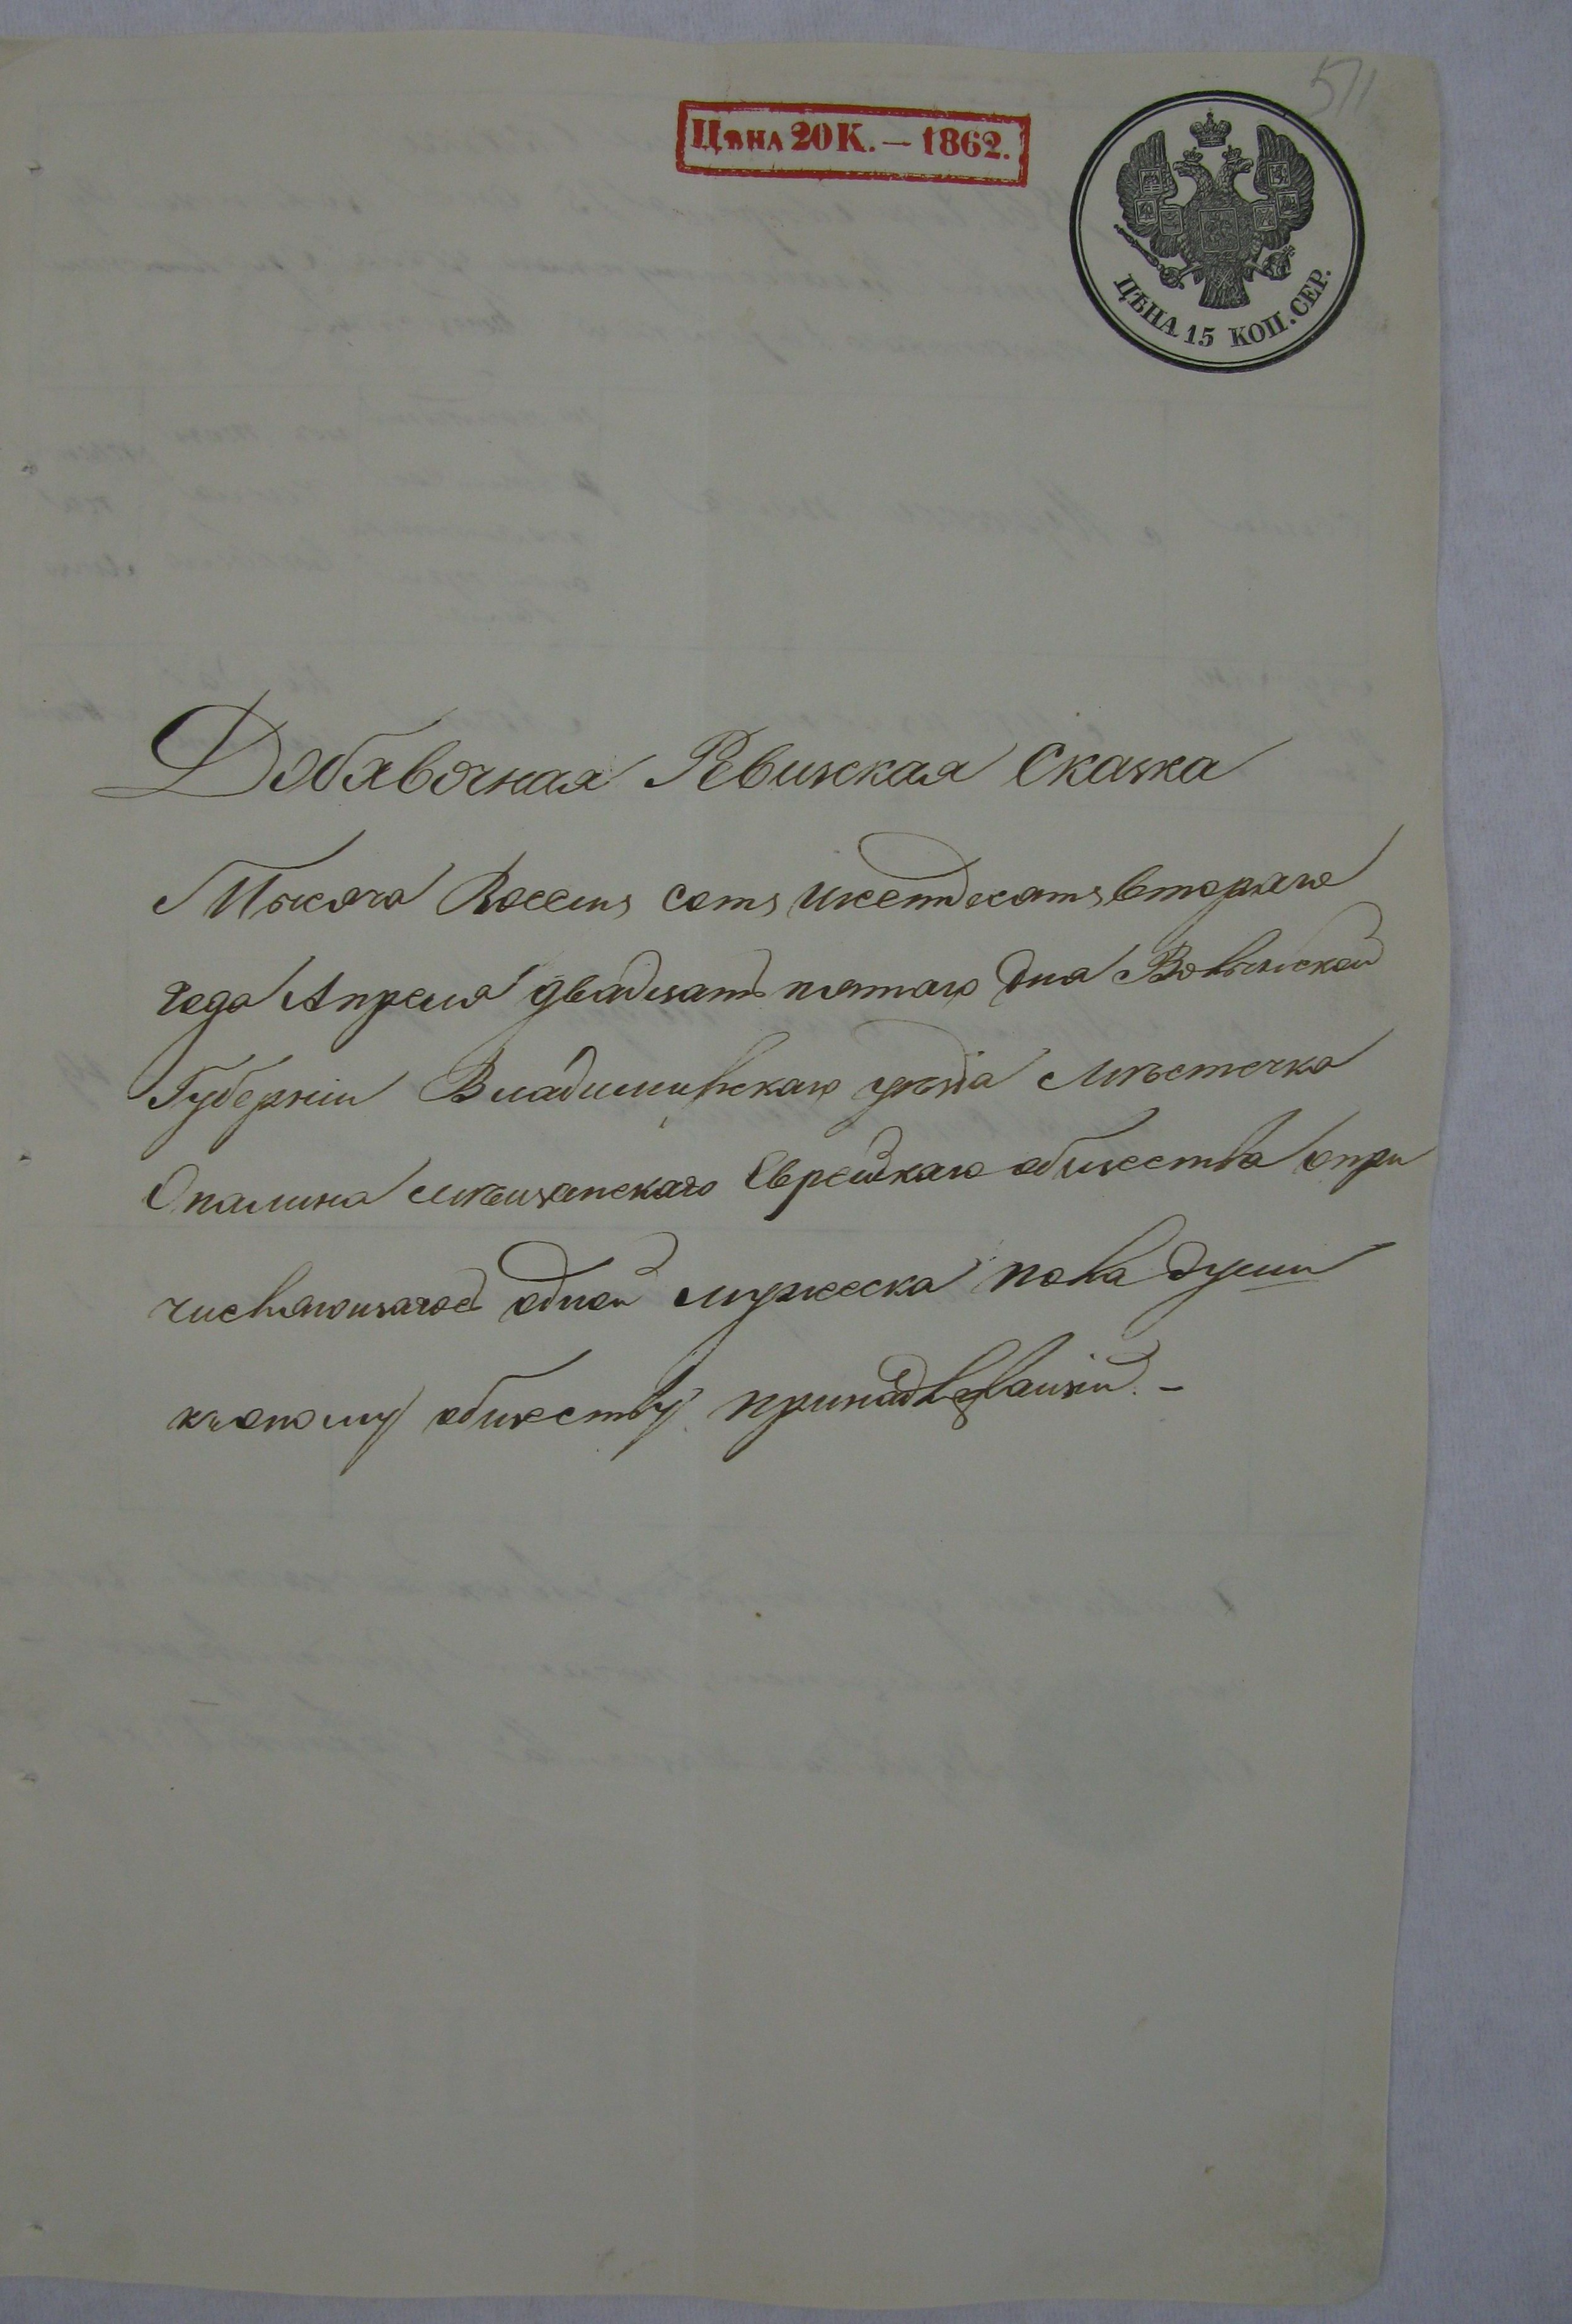 511
Цѣна 20 К. — 1862.
ЦѢНА 15 КОП. СЕР.
Добавочная Ревизская Сказка
Тысяча Восемь сотъ шестдесятъ втораго
года Апреля двадцать пятаго дня Волынской
Губерніи Владимирскаго уѣзда мѣстечка
Опалина мѣщанскаго Еврейскаго общества о при
числяющагося одной мужеска пола души
къ оному обществу принадлежащій. –